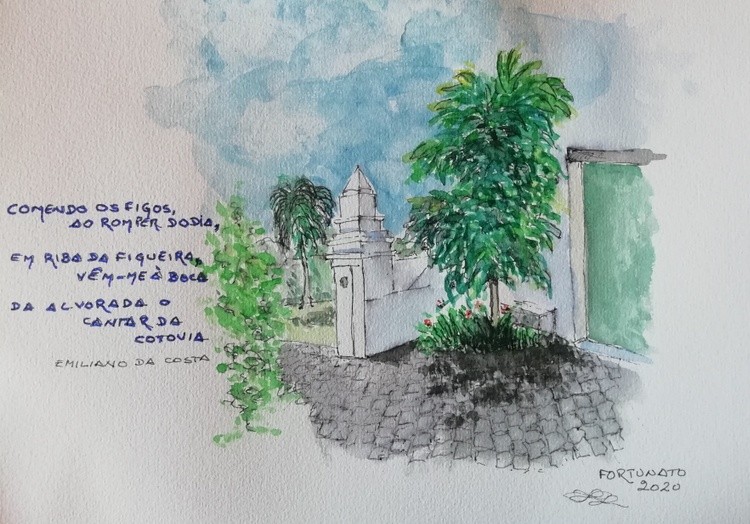 COMENDO OS FIGOS,
AO ROMPER DO DIA,
EM RIBA DA FIQUEIRA,
VÊM-ME À BOCA
DA ALVORADA O
CANTAR DA
COTOVIA
EMILIANO DA COSTA
FORTUNATO
2020